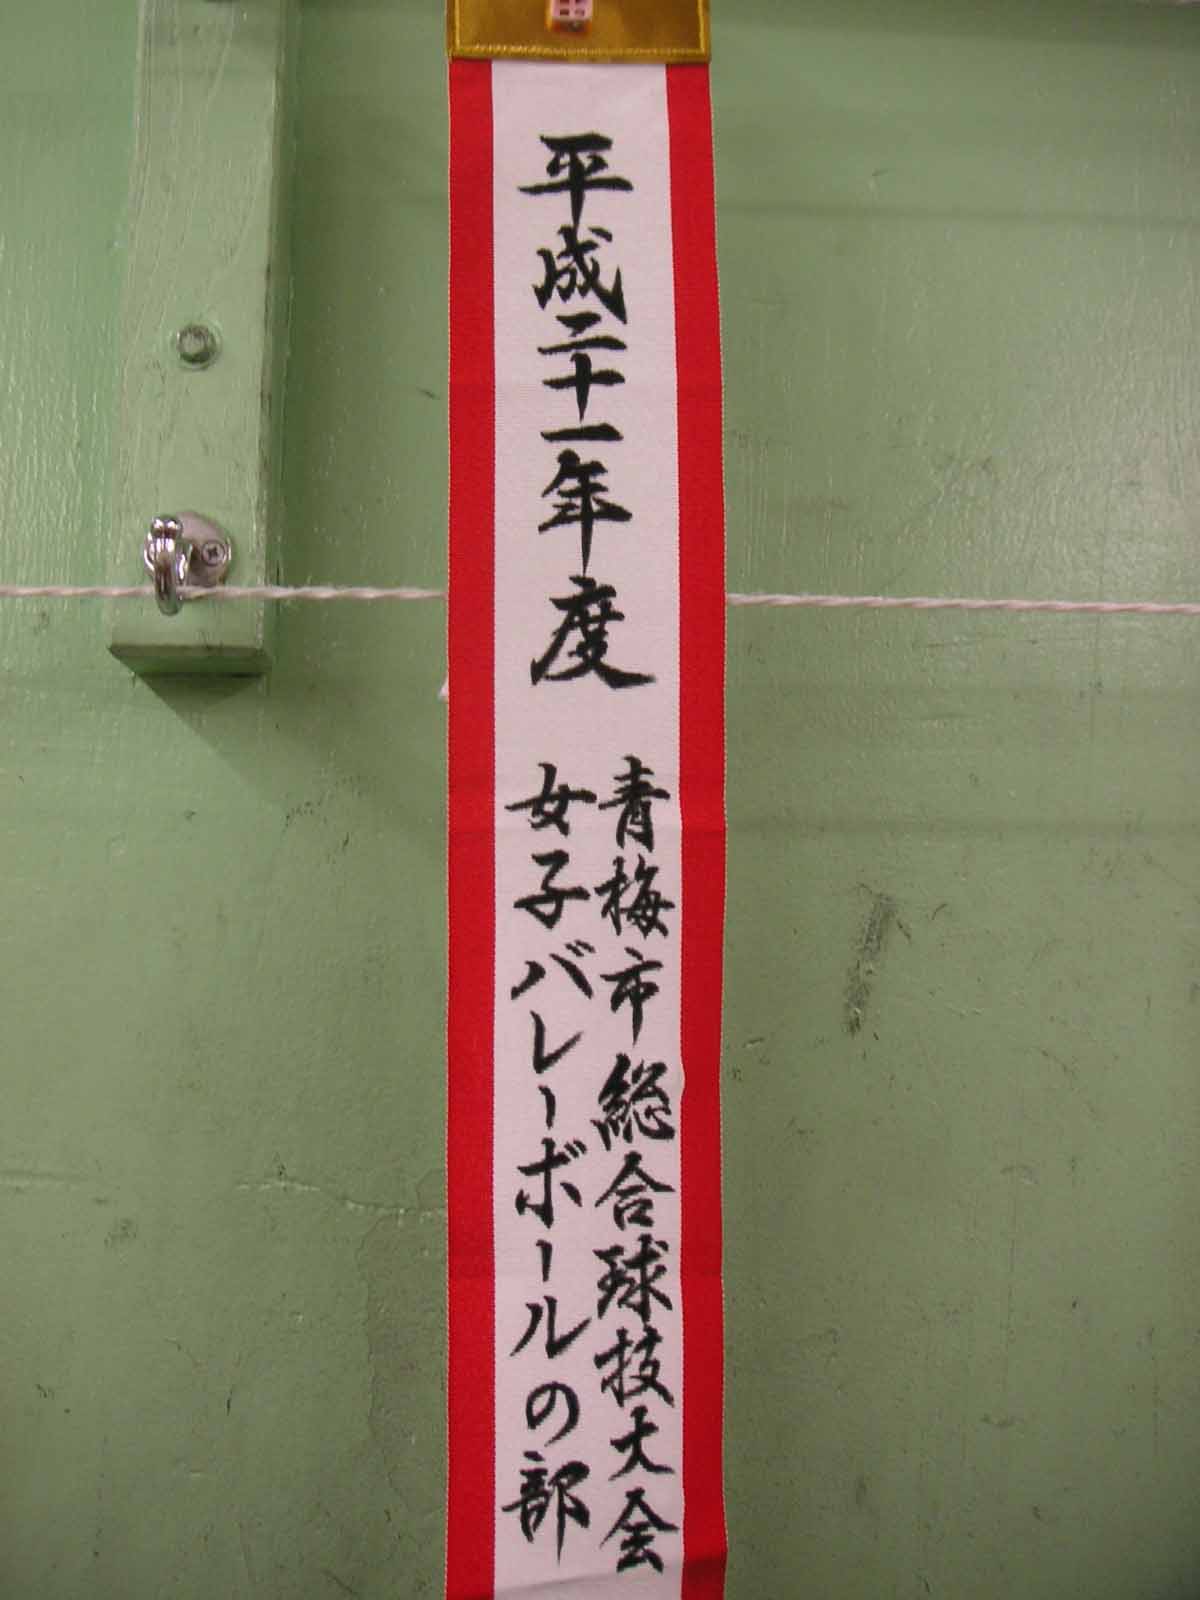 平成二十一年度
青梅市総合球技大会
女子バレーボールの部